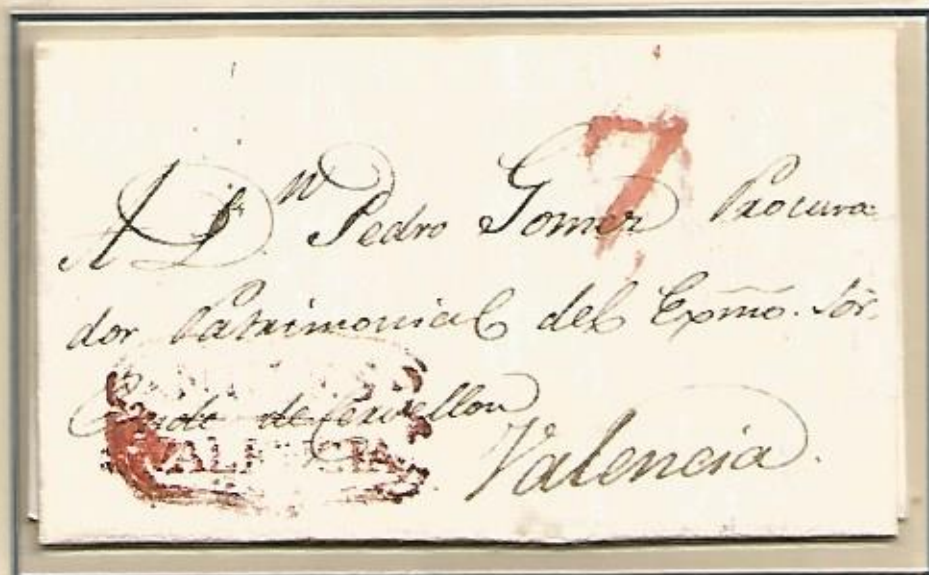 7
A Dⁿ Pedro Gomez Procura=
dor Patrimonial del Exmo. Sor.
Conde de Cervellon
VALENCIA
Valencia.